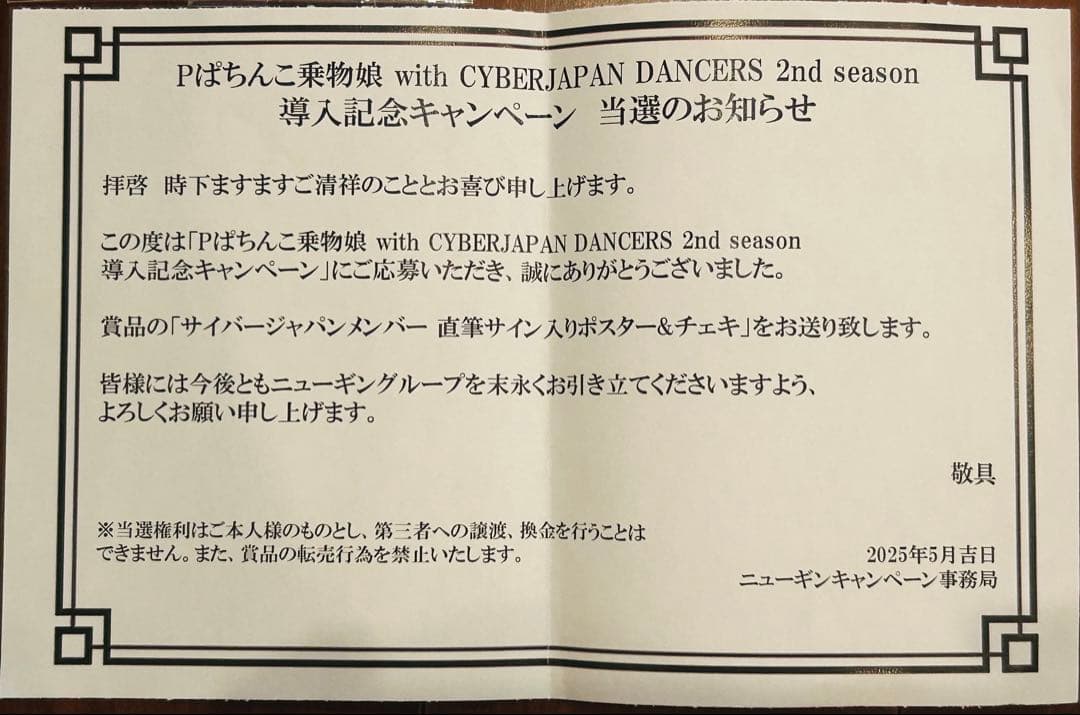 Pぱちんこ乗物娘 with CYBERJAPAN DANCERS 2nd season
導入記念キャンペーン 当選のお知らせ
拝啓 時下ますますご清祥のこととお喜び申し上げます。
この度は「Pぱちんこ乗物娘 with CYBERJAPAN DANCERS 2nd season
導入記念キャンペーン」にご応募いただき、誠にありがとうございました。
賞品の「サイバージャパンメンバー 直筆サイン入りポスター&チェキ」をお送り致します。
皆様には今後ともニューギングループを末永くお引き立てくださいますよう、
よろしくお願い申し上げます。
敬具
※当選権利はご本人様のものとし、第三者への譲渡、換金を行うことは
できません。また、賞品の転売行為を禁止いたします。
2025年5月吉日
ニューギンキャンペーン事務局